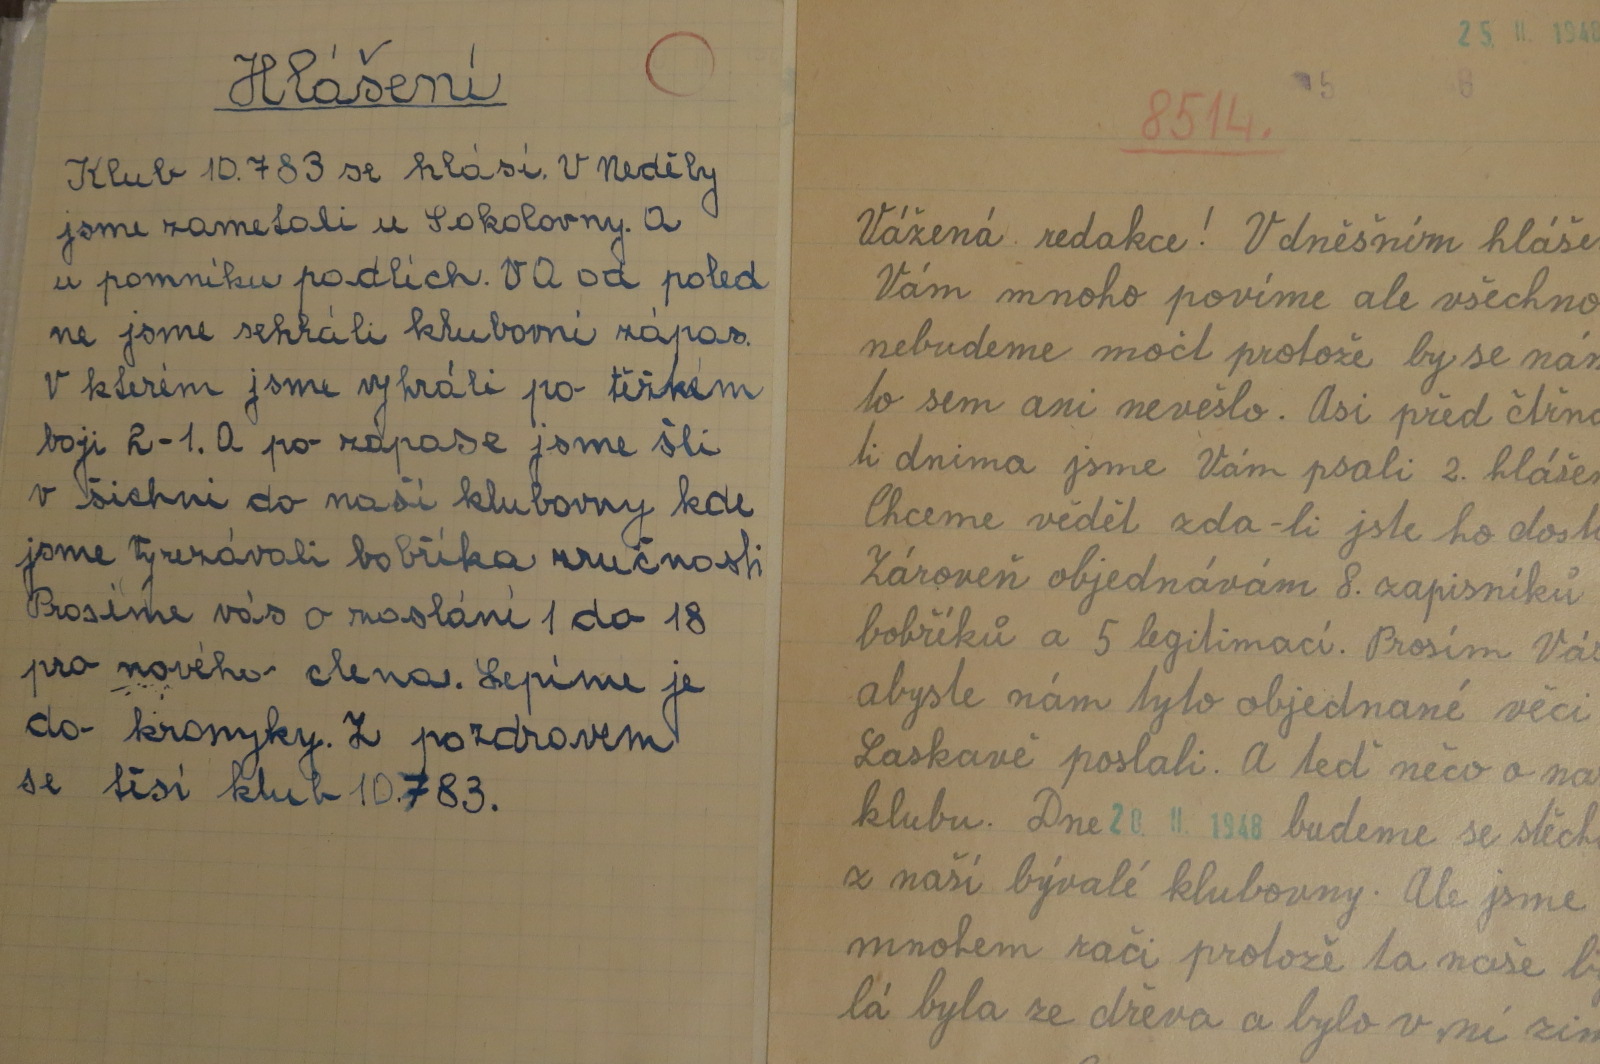 Hlášení
Klub 10.783 se hlásí. V Neděly
jsme zametali u Sokolovny. A
u pomníku podlích. V A od poled
ne jsme sehráli klubovní zápas.
V kterém jsme vyhráli po těžkém
boji 2-1. A po zápase jsme šli
v šichni do naší klubovny kde
jsme vyrezávali bobříka zručnosti
Prosíme vás o zaslání 1 do 18
pro nového clena. Lepíme je
do kronyky. Z pozdravem
se těsí klub 10.783.
25. II. 1948
5 8
8514.
Vážená redakce! V dněšním hláše
Vám mnoho povíme ale všechno
nebudeme moct protože by se nám
to sem ani nevešlo. Asi před čtrná
ti dnima jsme Vám psali 2. hlášen
Chceme vědět zda-li jste ho dosta
Zároveň objednávám 8. zapisníků
bobříků a 5 legitimací. Prosím Vás
abyste nám tyto objednané věci
Laskavě poslali. A teď něčo o na
klubu. Dne 28. II. 1948 budeme se stěch
z naší bývalé klubovny. Ale jsme
mnohem rači protože ta naše by
lá byla ze dřeva a bylo v ní zim